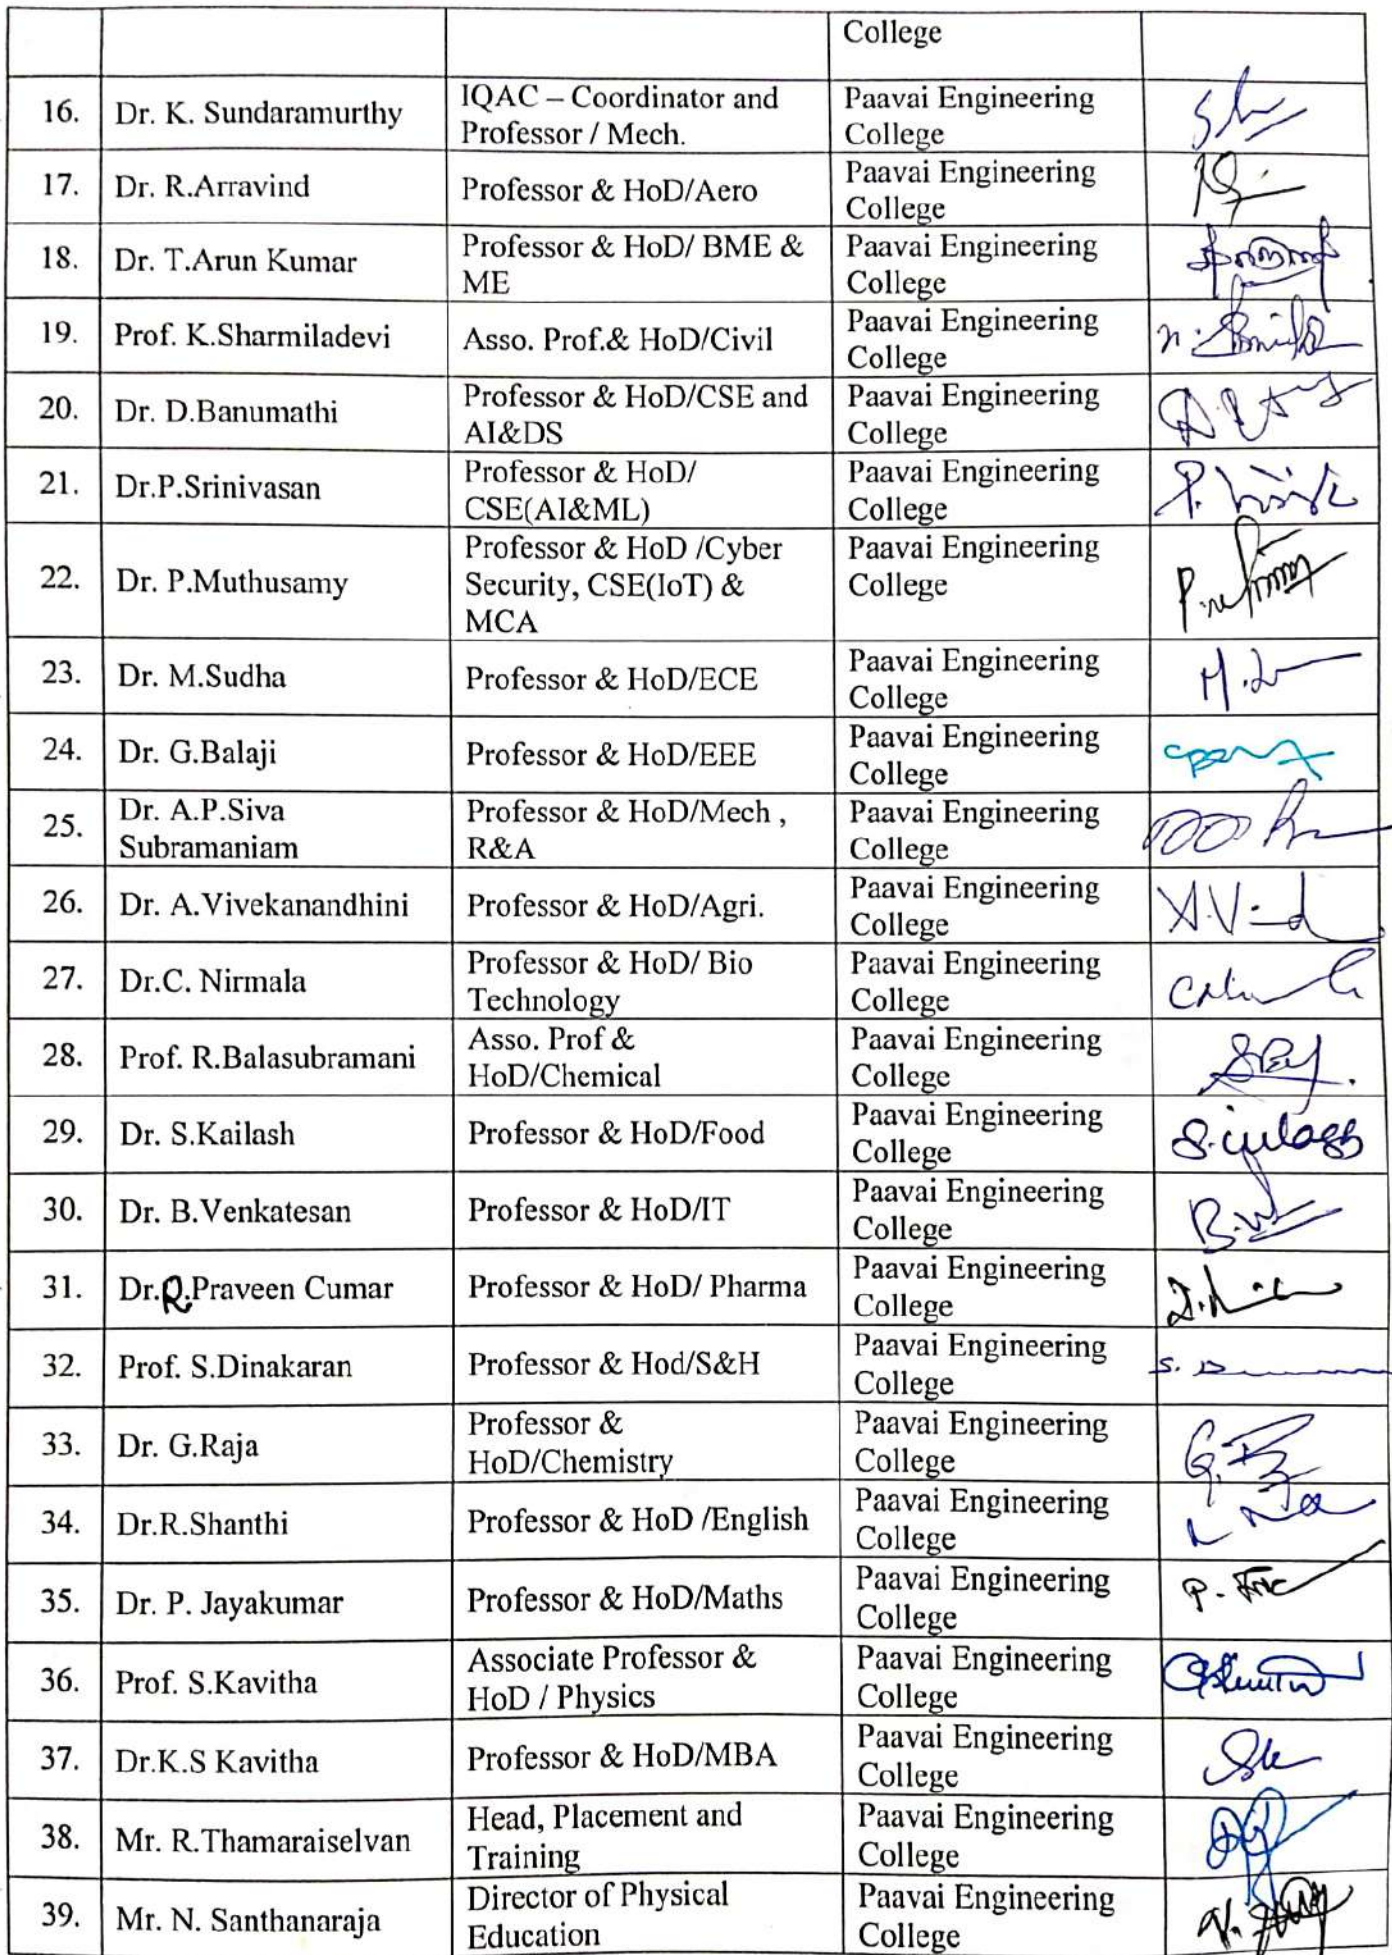 College
16. Dr. K. Sundaramurthy IQAC – Coordinator and Professor / Mech. Paavai Engineering College
17. Dr. R.Arravind Professor & HoD/Aero Paavai Engineering College
18. Dr. T.Arun Kumar Professor & HoD/ BME & ME Paavai Engineering College
19. Prof. K.Sharmiladevi Asso. Prof.& HoD/Civil Paavai Engineering College
20. Dr. D.Banumathi Professor & HoD/CSE and AI&DS Paavai Engineering College
21. Dr.P.Srinivasan Professor & HoD/ CSE(AI&ML) Paavai Engineering College
22. Dr. P.Muthusamy Professor & HoD /Cyber Security, CSE(IoT) & MCA Paavai Engineering College
23. Dr. M.Sudha Professor & HoD/ECE Paavai Engineering College
24. Dr. G.Balaji Professor & HoD/EEE Paavai Engineering College
25. Dr. A.P.Siva Subramaniam Professor & HoD/Mech , R&A Paavai Engineering College
26. Dr. A.Vivekanandhini Professor & HoD/Agri. Paavai Engineering College
27. Dr.C. Nirmala Professor & HoD/ Bio Technology Paavai Engineering College
28. Prof. R.Balasubramani Asso. Prof & HoD/Chemical Paavai Engineering College
29. Dr. S.Kailash Professor & HoD/Food Paavai Engineering College
30. Dr. B.Venkatesan Professor & HoD/IT Paavai Engineering College
31. Dr.R.Praveen Cumar Professor & HoD/ Pharma Paavai Engineering College
32. Prof. S.Dinakaran Professor & Hod/S&H Paavai Engineering College
33. Dr. G.Raja Professor & HoD/Chemistry Paavai Engineering College
34. Dr.R.Shanthi Professor & HoD /English Paavai Engineering College
35. Dr. P. Jayakumar Professor & HoD/Maths Paavai Engineering College
36. Prof. S.Kavitha Associate Professor & HoD / Physics Paavai Engineering College
37. Dr.K.S Kavitha Professor & HoD/MBA Paavai Engineering College
38. Mr. R.Thamaraiselvan Head, Placement and Training Paavai Engineering College
39. Mr. N. Santhanaraja Director of Physical Education Paavai Engineering College